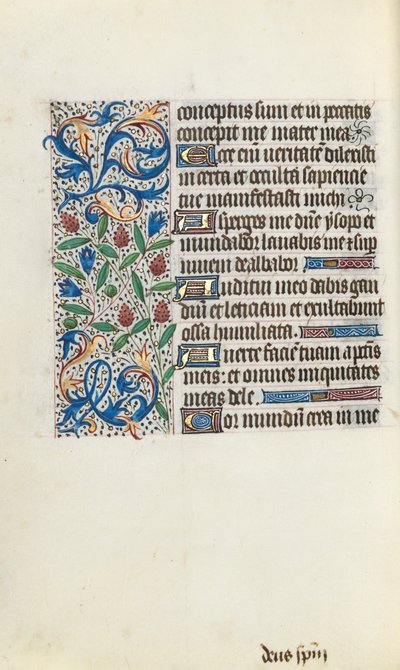 conceptus sum et in peccatis
concepit me mater mea
Ecce enī veritatē dilexisti
incerta et occulta sapiencie
tue manifestasti michi
Asperges me dn̄e ysopo et
mundabor: lavabis me ⁊ sup
nivem dealbabor
Auditui meo dabis gau
diū et leticiam et exultabunt
ossa humiliata.
Averte faciē tuam a pctīs
meis: et omnes iniquitates
meas dele.
Cor mundum crea in me
deus spūs